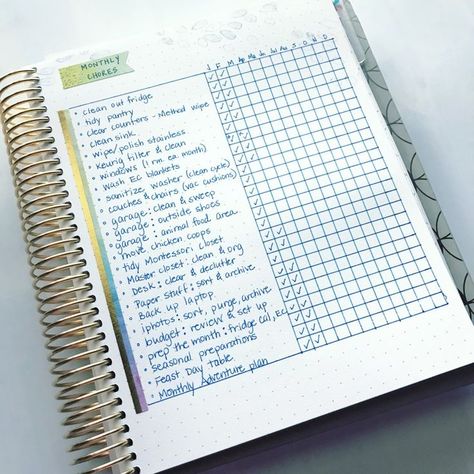 MONTHLY
CHORES
J F M Ap Ma Jn Ju Au S O N D
• clean out fridge
• tidy pantry
• clear counters - Method wipe
• clean sink
• wipe/polish stainless
• Keurig filter & clean
• windows (1 rm. ea. month)
• wash EC blankets
• sanitize washer (clean cycle)
• couches & chairs (vac cushions)
• garage: clean & sweep
• garage: outside shoes
• garage: animal food area
• move chicken coops
• tidy Montessori closet
• Master closet: clean & org
• Desk: clear & declutter
• Paper stuff: sort & archive
• Back up laptop
• iphotos: sort, purge, archive
• budget: review & set up
• prep the month: fridge cal, Ec
• seasonal preparations
• Feast Day table
• Monthly Adventure plan